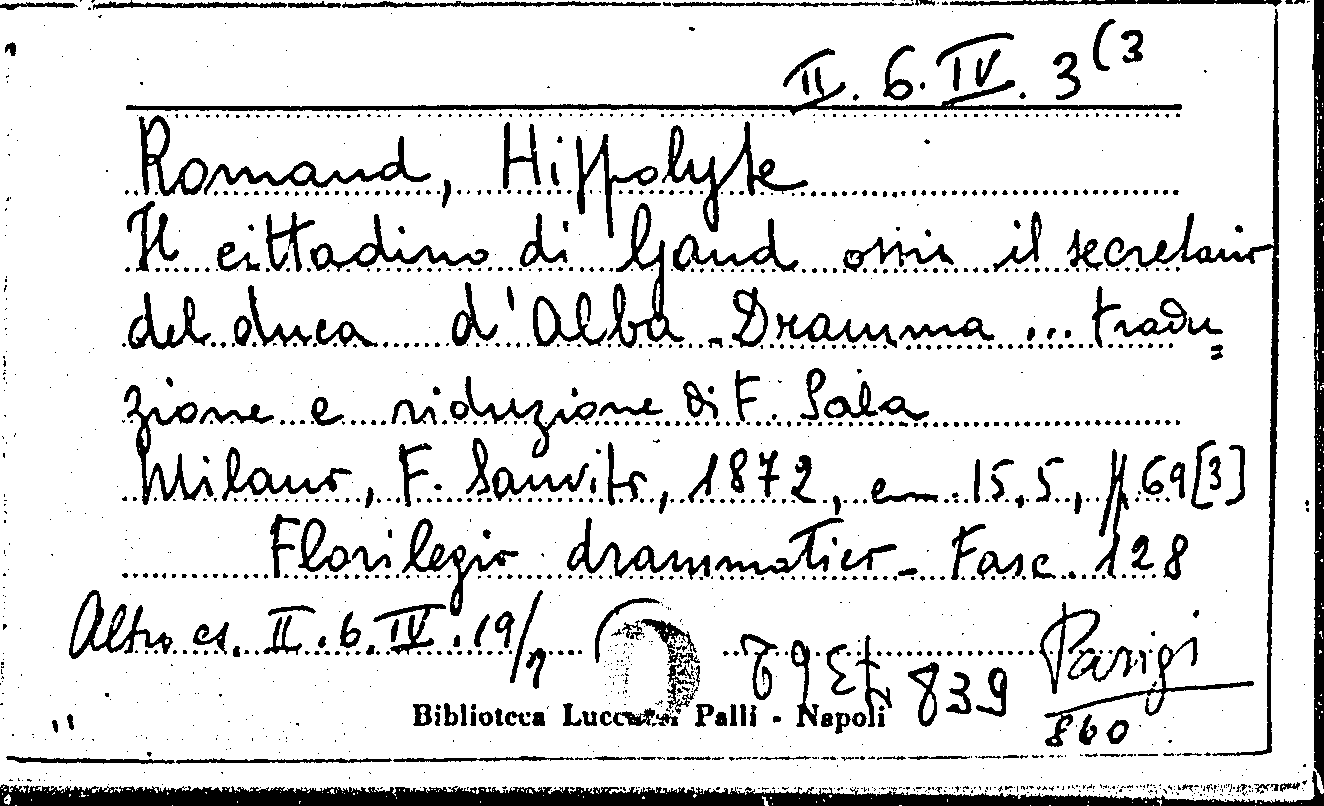 II. 6. IV. 3(3
Romand, Hippolyte
Il cittadino di Gand ossia il secretario
del duca d'Alba - Dramma ... tradu=
zione e riduzione di F. Sala
Milano, F. Sanvito, 1872, cm. 15,5, pp. 69 [3]
Florilegio drammatico - Fasc. 128
Altro es. II. 6. IV. 19/7
839 Parigi
860
Biblioteca Lucchesi Palli - Napoli